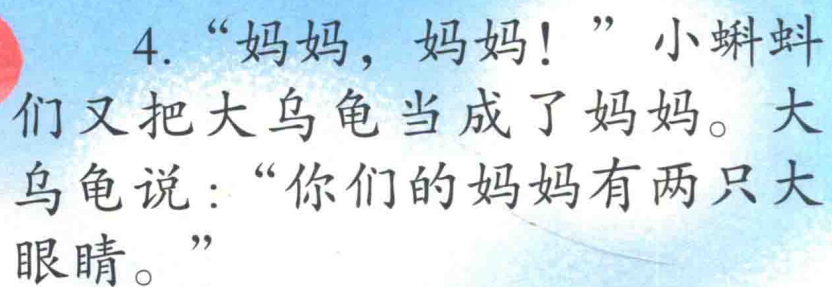 4.“妈妈，妈妈！”小蝌蚪
们又把大乌龟当成了妈妈。大
乌龟说：“你们的妈妈有两只大
眼睛。”